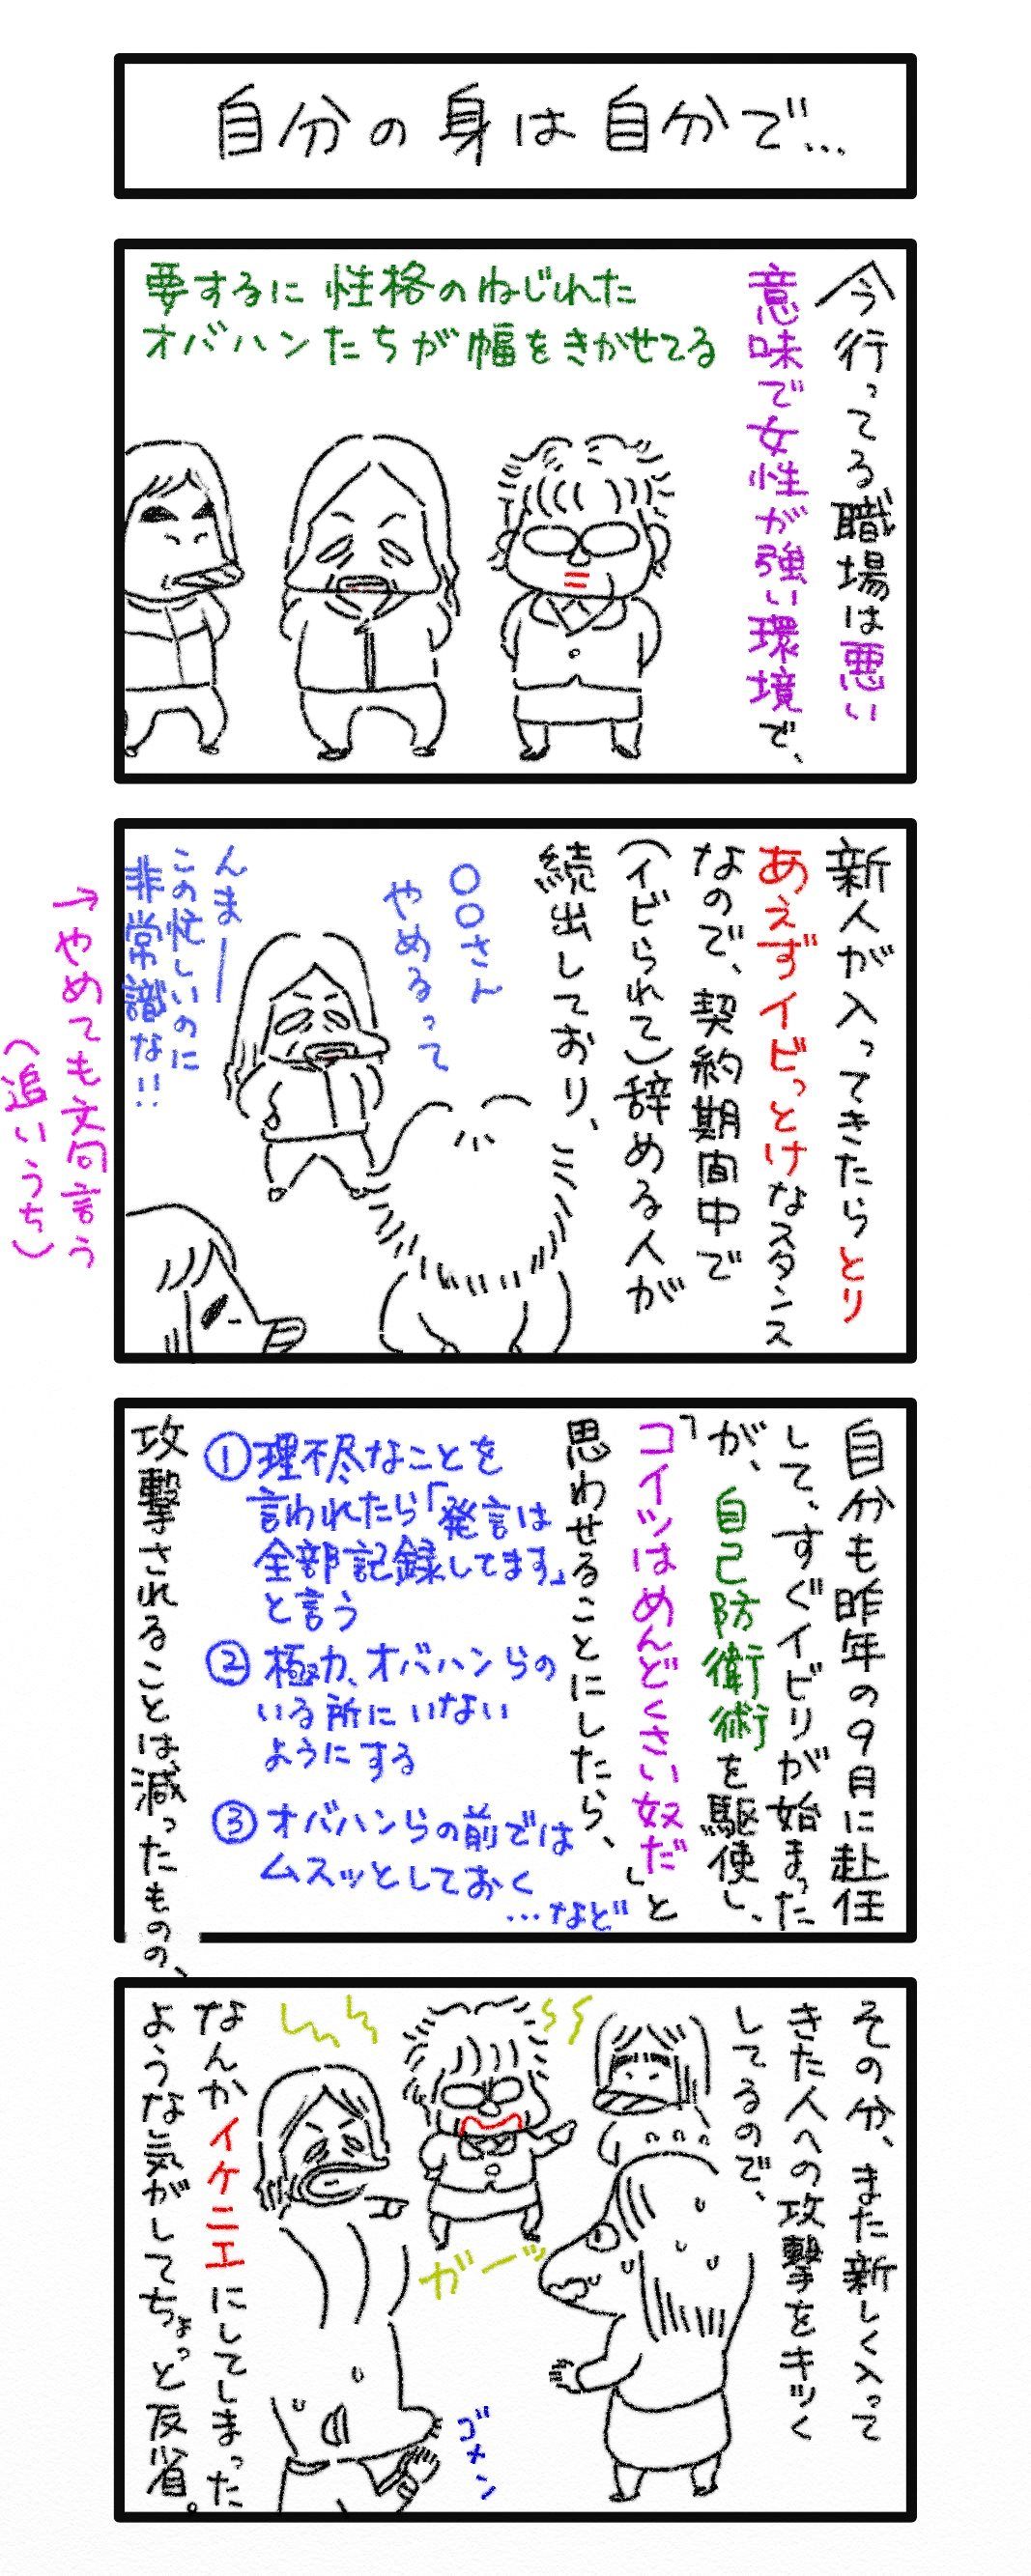 自分の身は自分で…
今行ってる職場は悪い
意味で女性が強い環境で、
要するに性格のねじれた
オバハンたちが幅をきかせてる
新人が入ってきたらとり
あえずイビっとけなスタンス
なので、契約期間中で
(イビられて)辞める人が
続出しており、
○○さん
やめるって
んまー
この忙しいのに
非常識な!!
→やめても文句言う
(追いうち)
自分も昨年の9月に赴任
して、すぐイビリが始まった
が、自己防衛術を駆使し、
「コイツはめんどくさい奴だ」と
思わせることにしたら、
①理不尽なことを
言われたら「発言は
全部記録してます」
と言う
②極力、オバハンらの
いる所にいない
ようにする
③オバハンらの前では
ムスッとしておく
…など
攻撃されることは減ったものの、
その分、また新しく入って
きた人への攻撃をキツく
してるので、
ガーッ
ゴメン
なんかイケニエにしてしまった
ような気がしてちょっと反省。